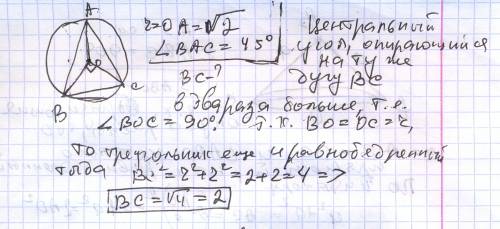 A
r=OA=√2
∠BAC=45°
BC-?
O
B
C
Центральный
угол, опирающийся
на ту же
дугу BC
в два раза больше, т.е.
∠BOC=90°. т.к. BO=OC=r,
то треугольник еще и равнобедренный
тогда BC²=r²+r²=2+2=4=>
BC=√4=2